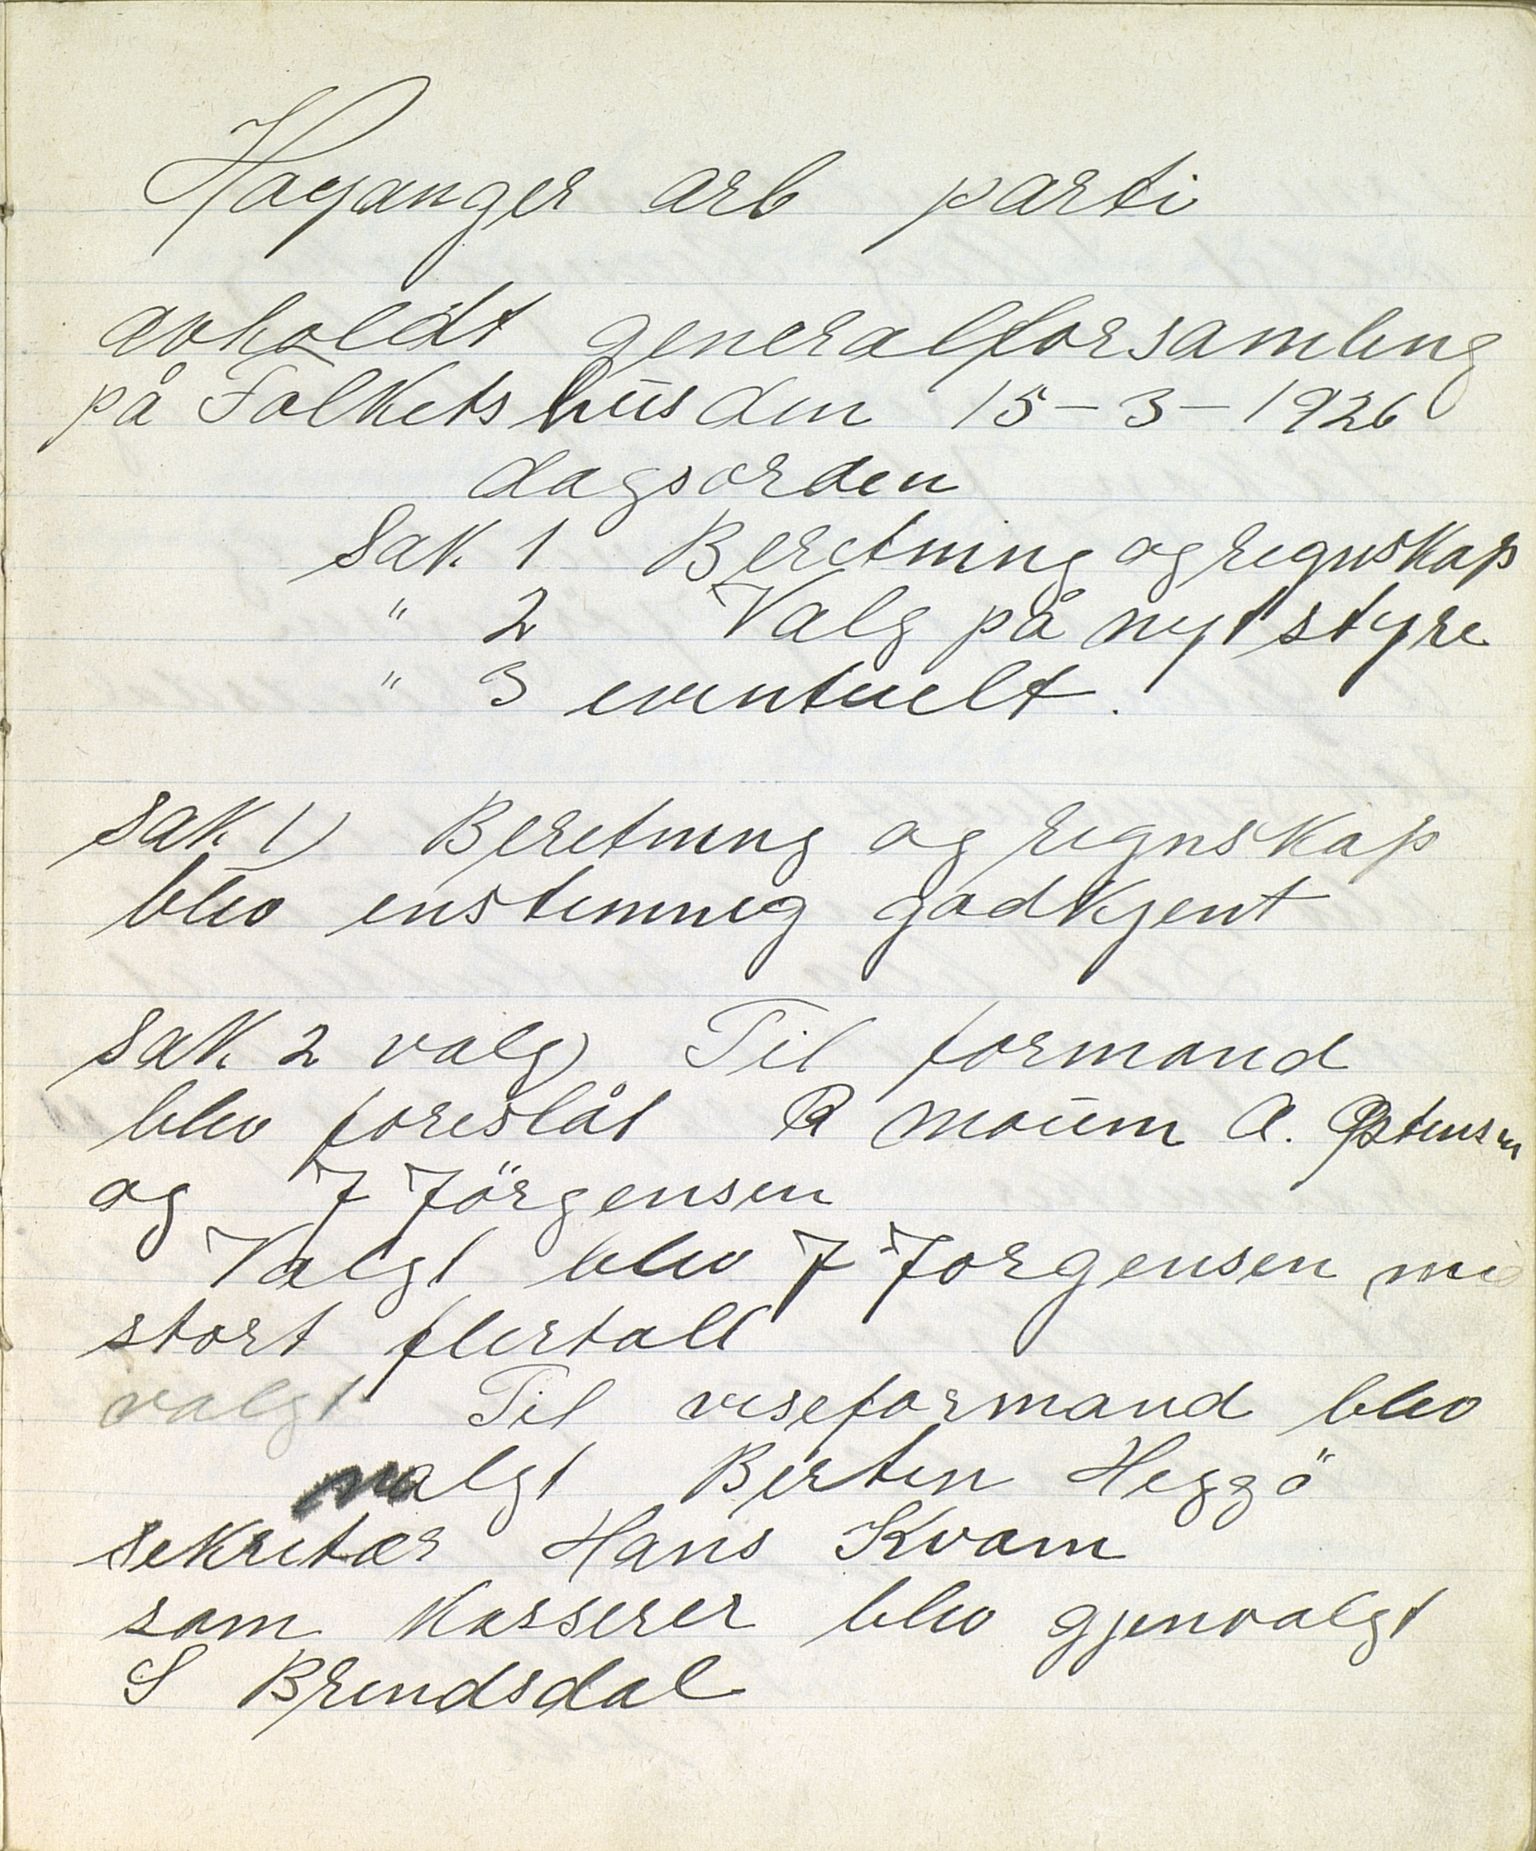 Høyanger arb parti
avholdt generalforsamling
på Folkets hus den 15-3-1926
dagsorden
Sak 1 Beretning og regnskap
" 2 Valg på nyt styre
" 3 eventuelt.
Sak 1) Beretning og regnskap
blev enstemmig godkjent
Sak 2 valg) Til formand
blev foreslåt R Moum A. Østensen
og J Jörgensen
Valgt blev J Jorgensen me
stort flertall
valgt Til viseformand blev
valgt Bertin Heggö
sekretær Hans Kvam
som kasserer blev gjenvalgt
S Brendsdal